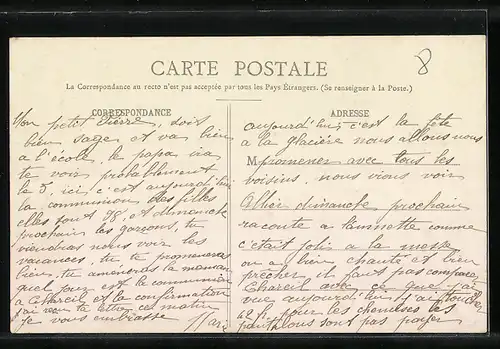 8
CARTE POSTALE
La Correspondance au recto n'est pas acceptée par tous les Pays Étrangers. (Se renseigner à la Poste.)
CORRESPONDANCE
Mon petit Pierre, sois
bien sage et va bien
a l'école, le papa ira
te voir probablement
le 5, ici c'est aujourd'hui
la communion des filles
elles sont 98, et dimanche
prochain les garçons, tu
viendras nous voir les
vacances, tu te promeneras
bien, tu amèneras ta maman
quel jour est la communion
a Chareil et la confirmation
j'ai reçu ta lettre ce matin
je vous embrasse
ADRESSE
aujourd'hui c'est la fête
a la glacière nous allons nous
M promener avec tous les
voisins, nous vions voir
dimanche prochain
raconte a comme
c'était joli a la messe
on a bien chanté et bien
prêcher, il faut pas comparer
Chareil avec ce que j'ai
vue aujourd'hui, j'ai
62 f. pour les chemises les
pantalons sont pas payer